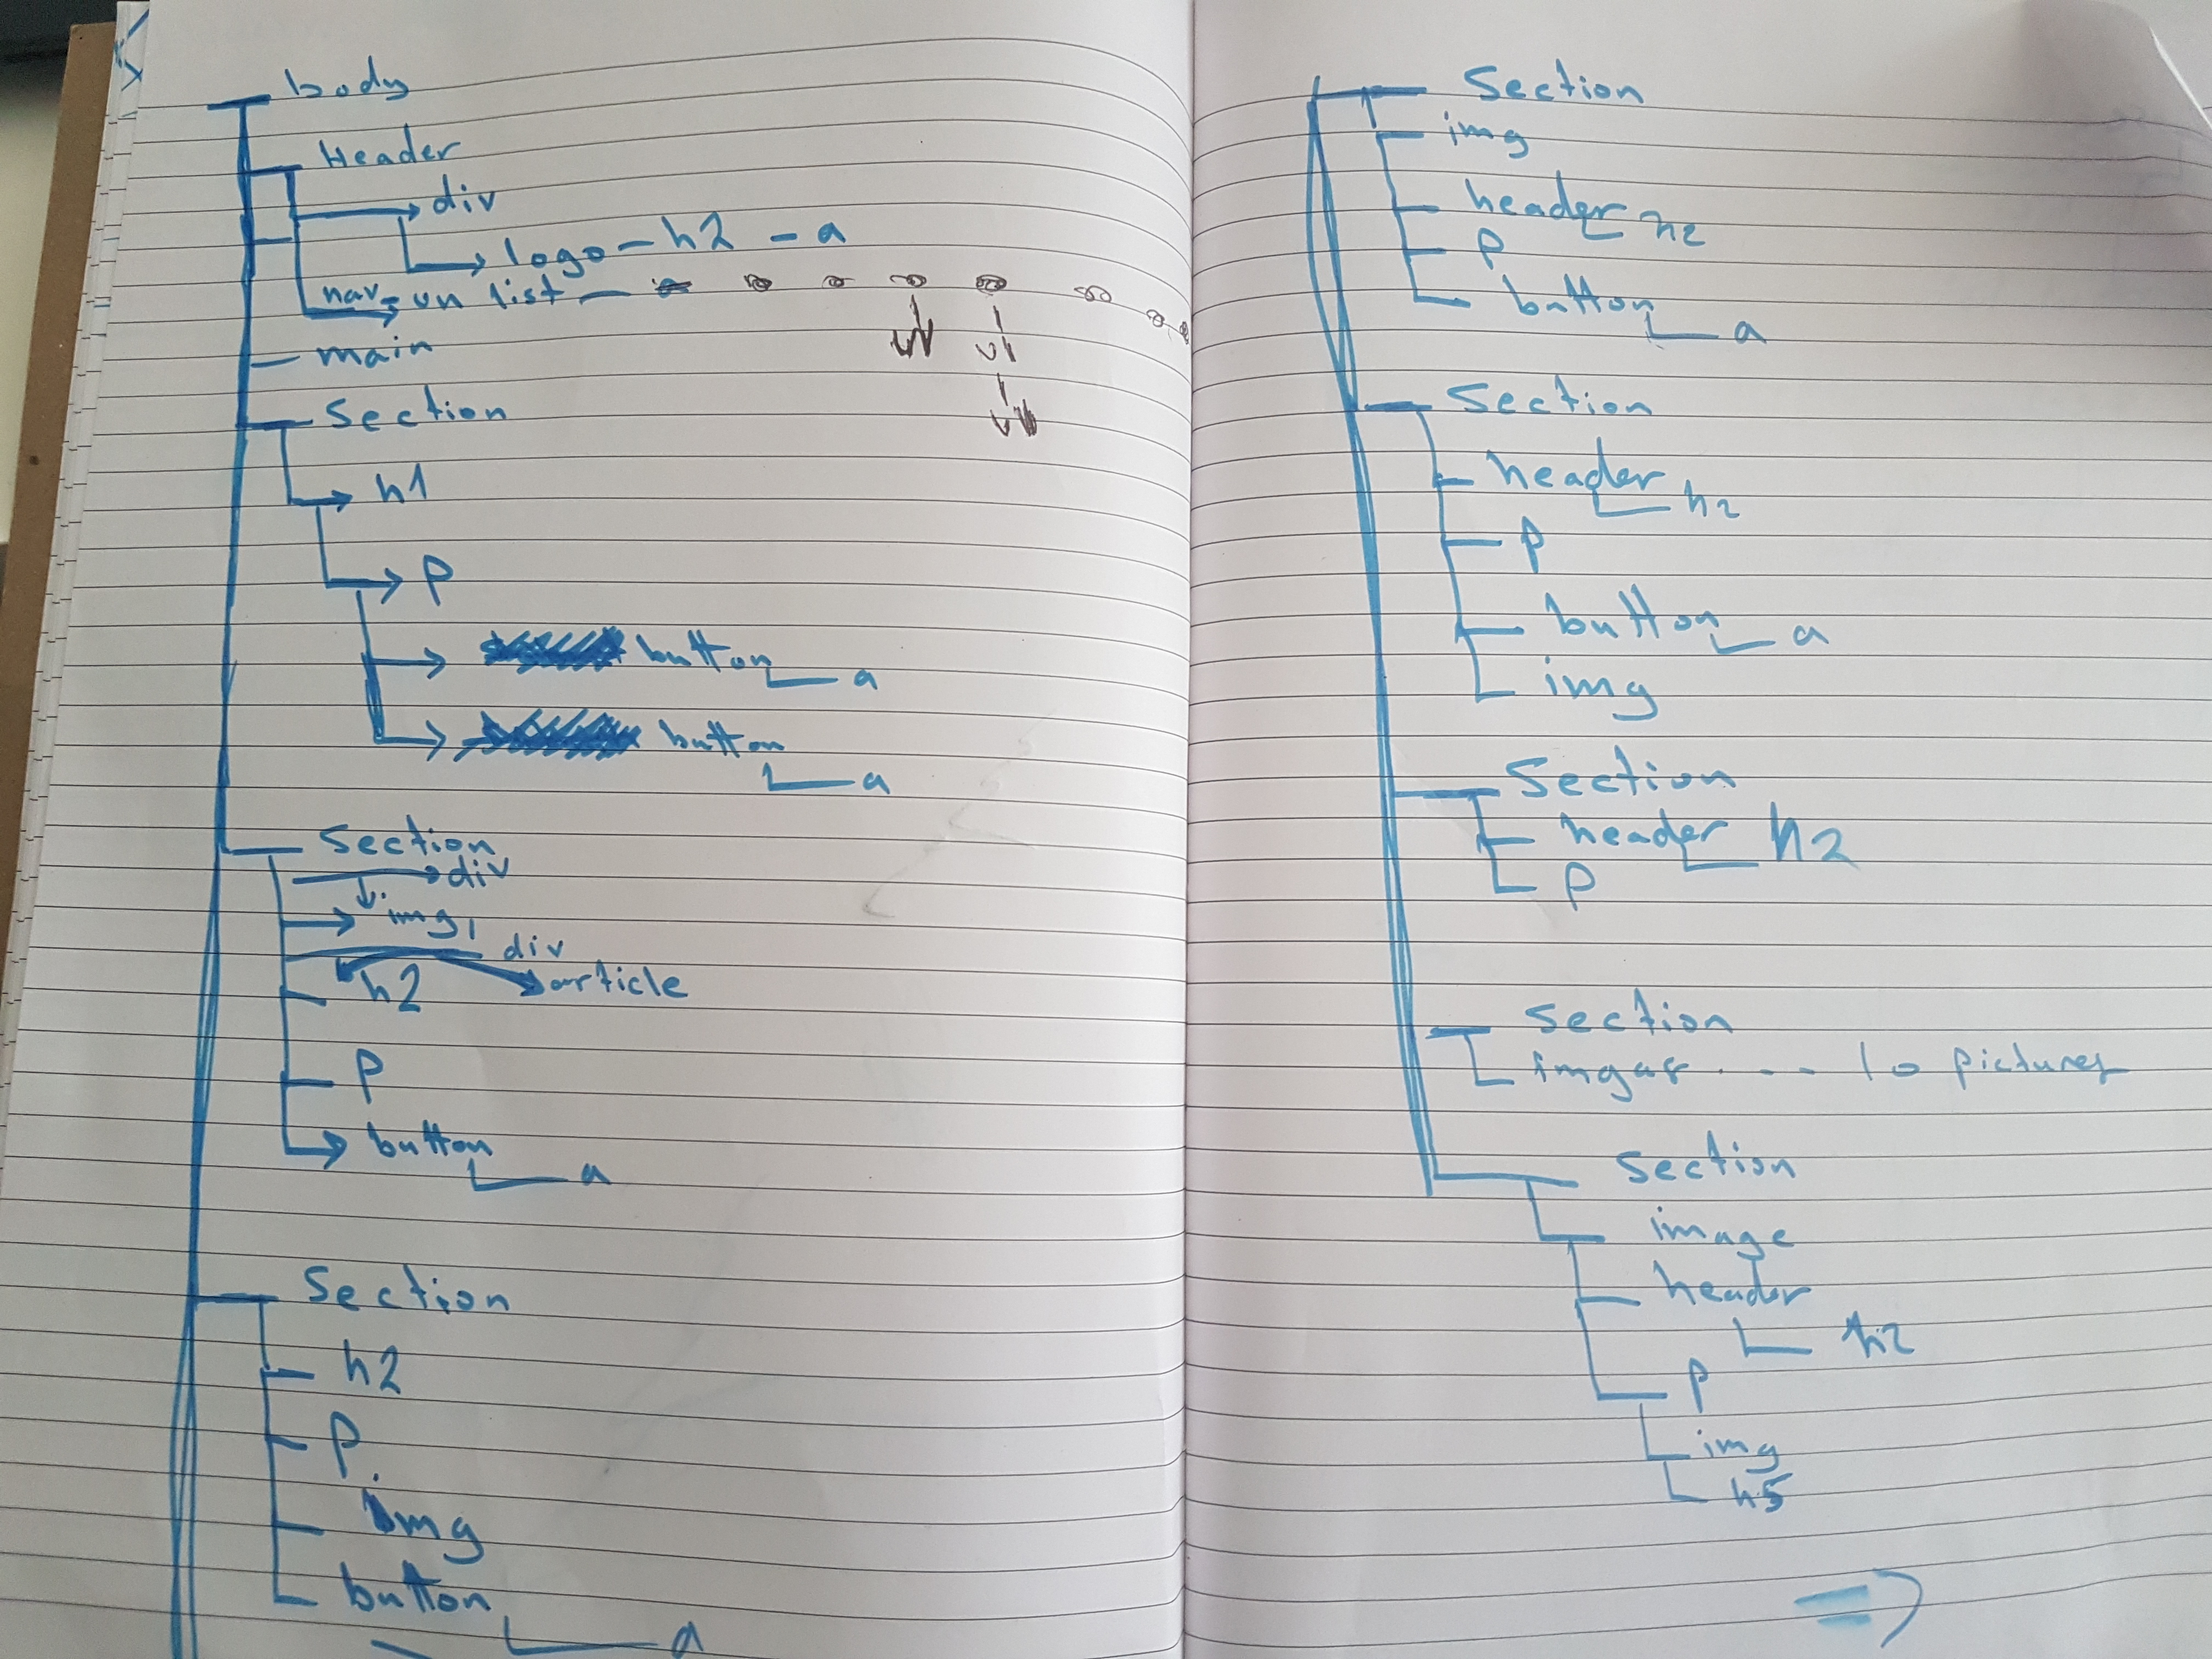 body
Header
div
logo - h2 - a
nav - un list
main
Section
h1
p
button
a
button
a
Section
div
img
div
article
h2
p
button
a
Section
h2
p
img
button
a
Section
img
header h2
p
button
a
Section
header
h2
p
button
a
img
Section
header
h2
p
Section
10 pictures
Section
image
header
h2
p
img
h5